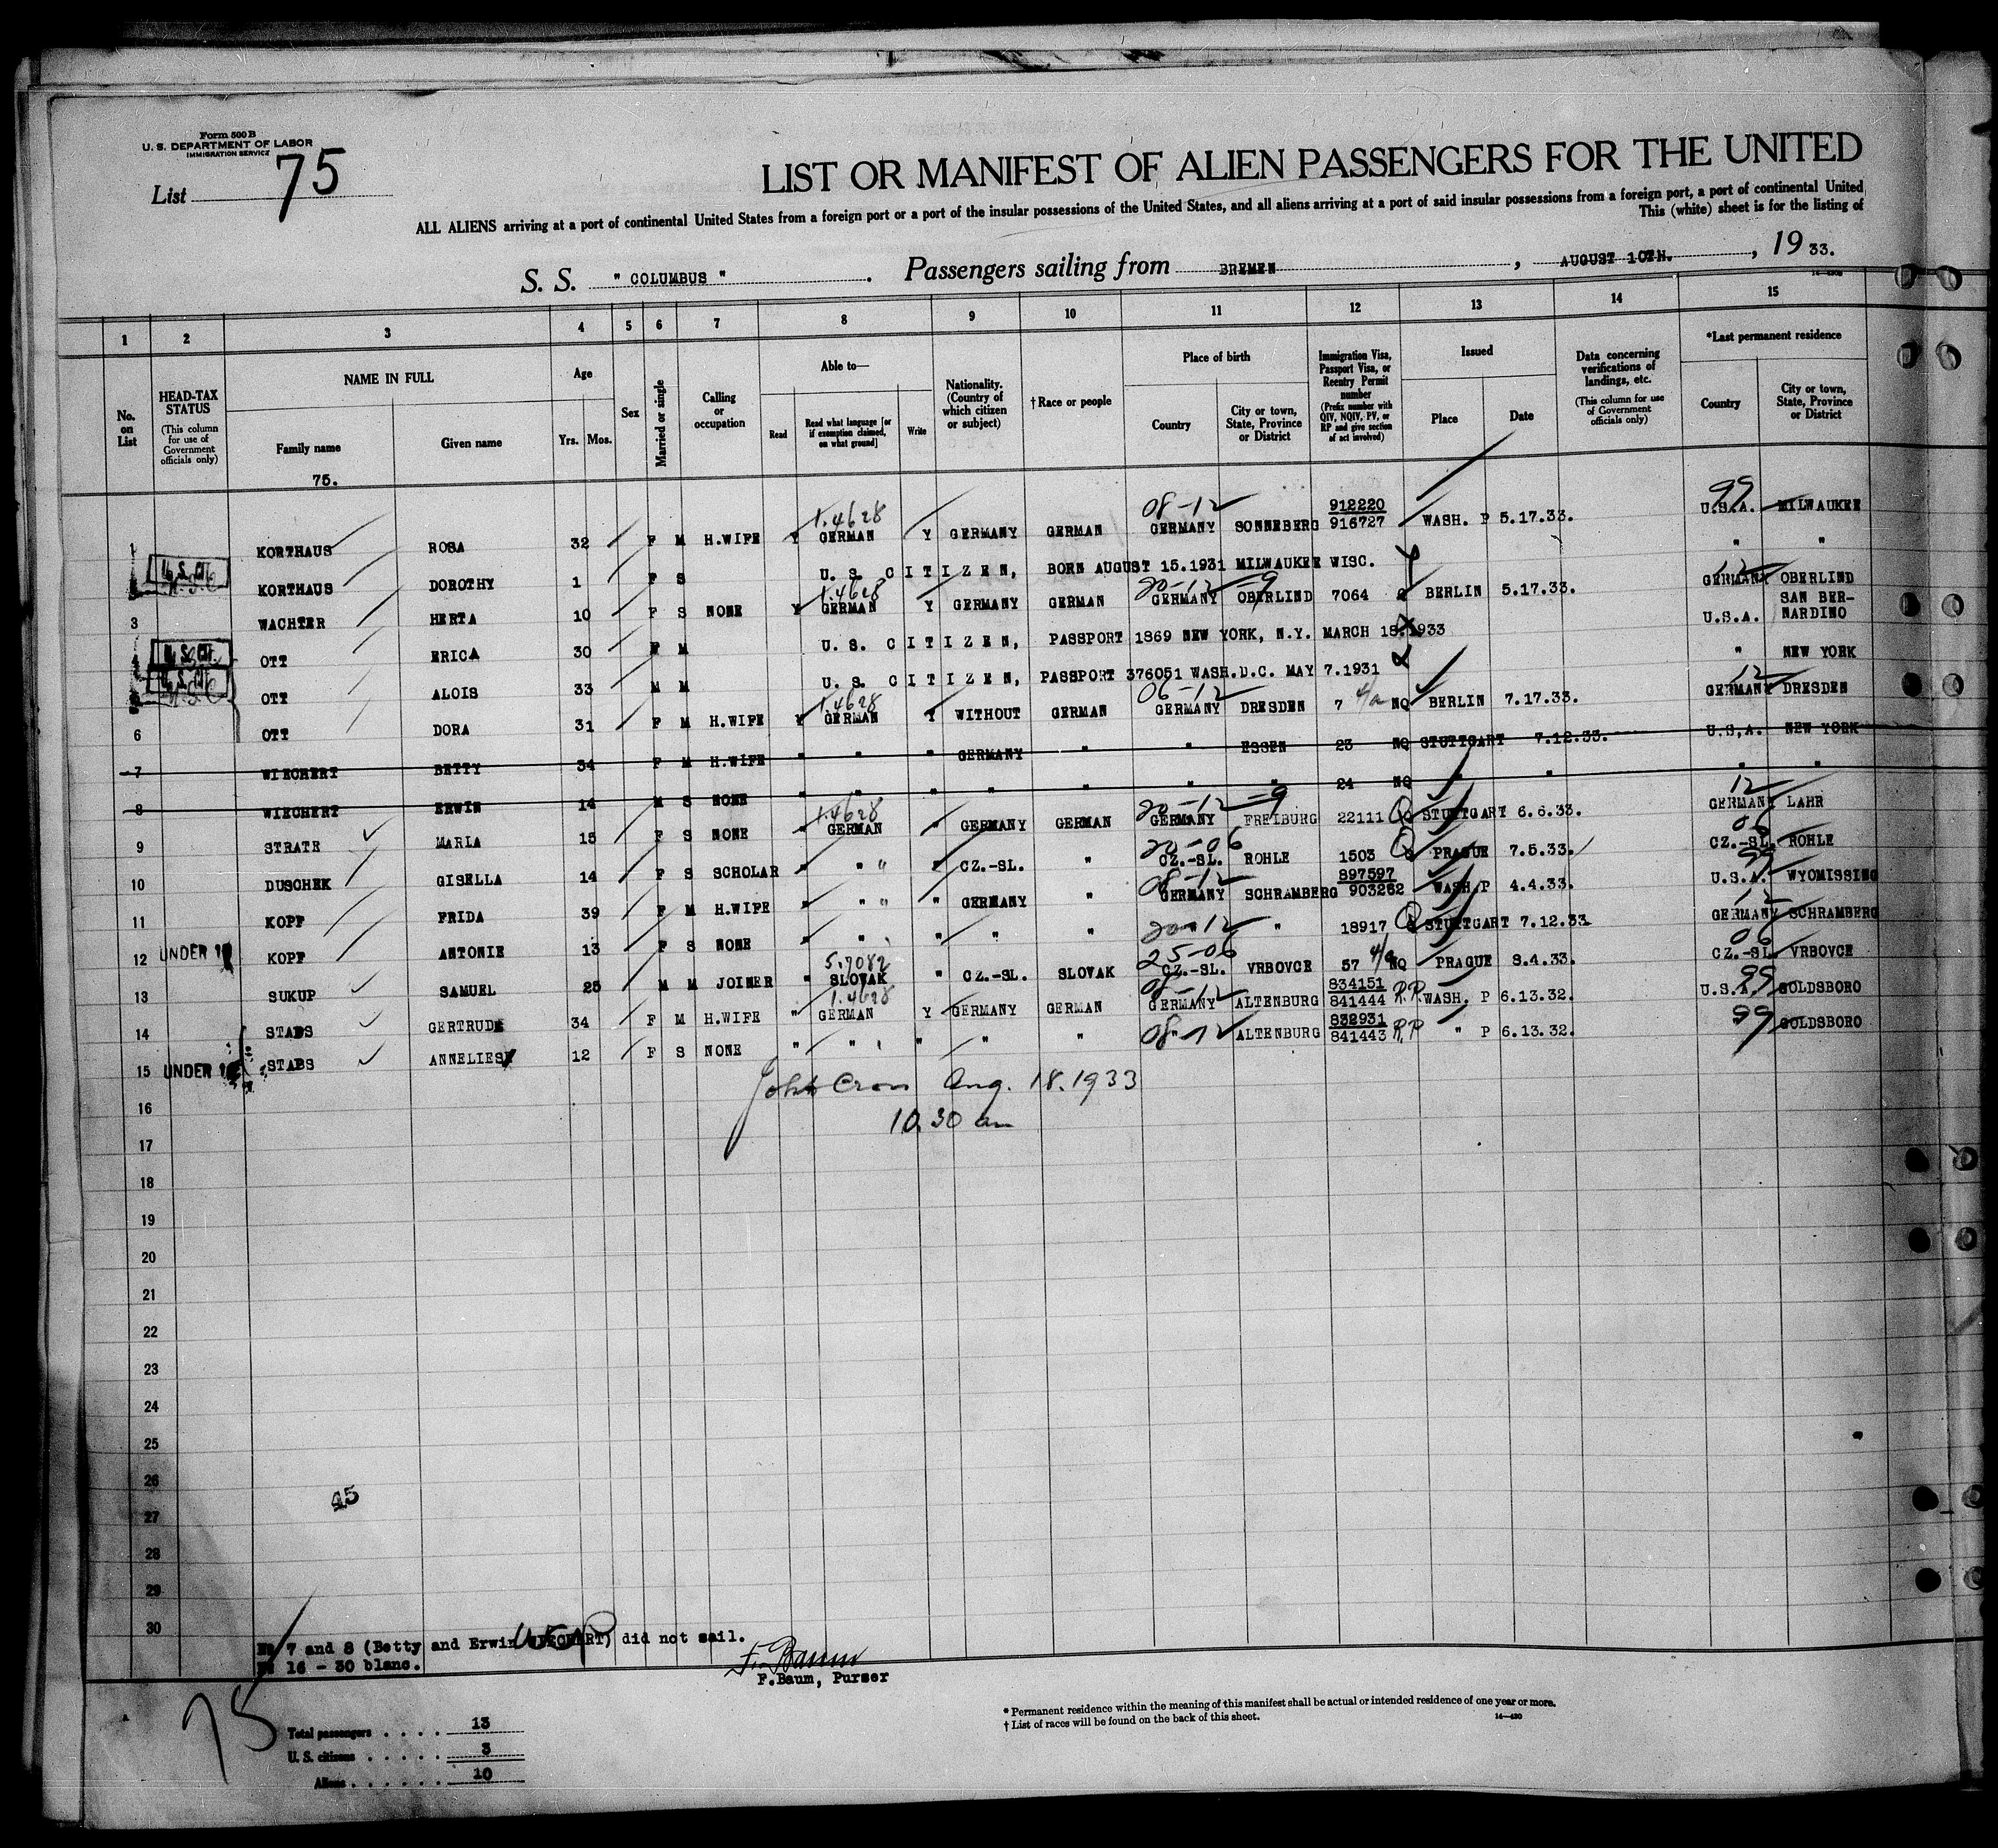 Form 500 B
U. S. DEPARTMENT OF LABOR
IMMIGRATION SERVICE
List 75
LIST OR MANIFEST OF ALIEN PASSENGERS FOR THE UNITED
ALL ALIENS arriving at a port of continental United States from a foreign port or a port of the insular possessions of the United States, and all aliens arriving at a port of said insular possessions from a foreign port, a port of continental United
This (white) sheet is for the listing of
S. S. " COLUMBUS ". Passengers sailing from BREMEN, AUGUST 10TH., 19 33.
1 2 3 4 5 6 7 8 9 10 11 12 13 14 15
No. on List
HEAD-TAX STATUS (This column for use of Government officials only)
NAME IN FULL
Family name
Given name
Age
Yrs. Mos.
Sex
Married or single
Calling or occupation
Able to—
Read
Read what language [or if exemption claimed, on what ground]
Write
Nationality. (Country of which citizen or subject)
†Race or people
Place of birth
Country
City or town, State, Province or District
Immigration Visa, Passport Visa, or Reentry Permit number (Prefix number with QIV, NQIV, PV, or RP and give section of act involved)
Issued
Place
Date
Data concerning verifications of landings, etc. (This column for use of Government officials only)
*Last permanent residence
Country
City or town, State, Province or District
75.
1 KORTHAUS ROSA 32 F M H.WIFE Y 1.4628 GERMAN Y GERMANY GERMAN 08-12 GERMANY SONNEBERG 912220 916727 WASH. P 5.17.33. 99 U.S.A. MILWAUKEE
U.S. Cit KORTHAUS DOROTHY 1 F S U. S. CITIZEN, BORN AUGUST 15.1931 MILWAUKEE WISC. " "
3 WACHTER HERTA 10 F S NONE Y 1.4628 GERMAN Y GERMANY GERMAN 20-12 GERMANY OBERLIND 7064 Q BERLIN 5.17.33. 12 GERMANY OBERLIND
4 U.S. Cit OTT ERICA 30 F M U. S. CITIZEN, PASSPORT 1869 NEW YORK, N.Y. MARCH 18.1933 U.S.A. SAN BERNARDINO
U.S. Cit OTT ALOIS 33 M M U. S. CITIZEN, PASSPORT 376051 WASH.D.C. MAY 7.1931 " NEW YORK
6 OTT DORA 31 F M H.WIFE Y 1.4628 GERMAN Y WITHOUT GERMAN 06-12 GERMANY DRESDEN 7 4/a NQ BERLIN 7.17.33. 12 GERMANY DRESDEN
7 WIECHERT BETTY 34 F M H.WIFE " " " GERMANY " " ESSEN 23 NQ STUTTGART 7.12.33. U.S.A. NEW YORK
8 WIECHERT ERWIN 14 M S NONE " " " " " " " 24 NQ " " " "
9 STRATE MARIA 15 F S NONE " 1.4628 GERMAN " GERMANY GERMAN 20-12 GERMANY FREIBURG 22111 Q STUTTGART 6.6.33. 12 GERMANY LAHR
10 DUSCHEK GISELLA 14 F S SCHOLAR " " " CZ.-SL. " 20-06 CZ.-SL. ROHLE 1503 Q PRAGUE 7.5.33. 06 CZ.-SL. ROHLE
11 KOPF FRIDA 39 F M H.WIFE " " " GERMANY " 08-12 GERMANY SCHRAMBERG 897597 903262 WASH. P 4.4.33. 99 U.S.A. WYOMISSING
12 UNDER 16 KOPF ANTONIE 13 F S NONE " " " " " 20-12 " 18917 Q STUTTGART 7.12.33 12 GERMANY SCHRAMBERG
13 SUKUP SAMUEL 25 M M JOINER " 5.7082 SLOVAK " CZ.-SL. SLOVAK 25-06 CZ.-SL. VRBOVCE 57 4/a NQ PRAGUE 8.4.33. 06 CZ.-SL. VRBOVCE
14 STABS GERTRUDE 34 F M H.WIFE " 1.4628 GERMAN Y GERMANY GERMAN 08-12 GERMANY ALTENBURG 834151 841444 R.P. WASH. P 6.13.32. 99 U.S.A. GOLDSBORO
15 UNDER 16 STABS ANNELIESE 12 F S NONE " " " " " 08-12 ALTENBURG 832931 841443 R.P " P 6.13.32. 99 GOLDSBORO
16 John Cron Aug. 18.1933
10.30 am
17
18
19
20
21
22
23
24
25
26
45
27
28
29
30
No 7 and 8 (Betty and Erwin WIECHERT) did not sail.
No 16 - 30 blanc.
F. Baum
F.Baum, Purser
75
Total passengers . . . . 13
U. S. citizens . . . . . 3
Aliens . . . . . . 10
* Permanent residence within the meaning of this manifest shall be actual or intended residence of one year or more.
† List of races will be found on the back of this sheet.
14—430